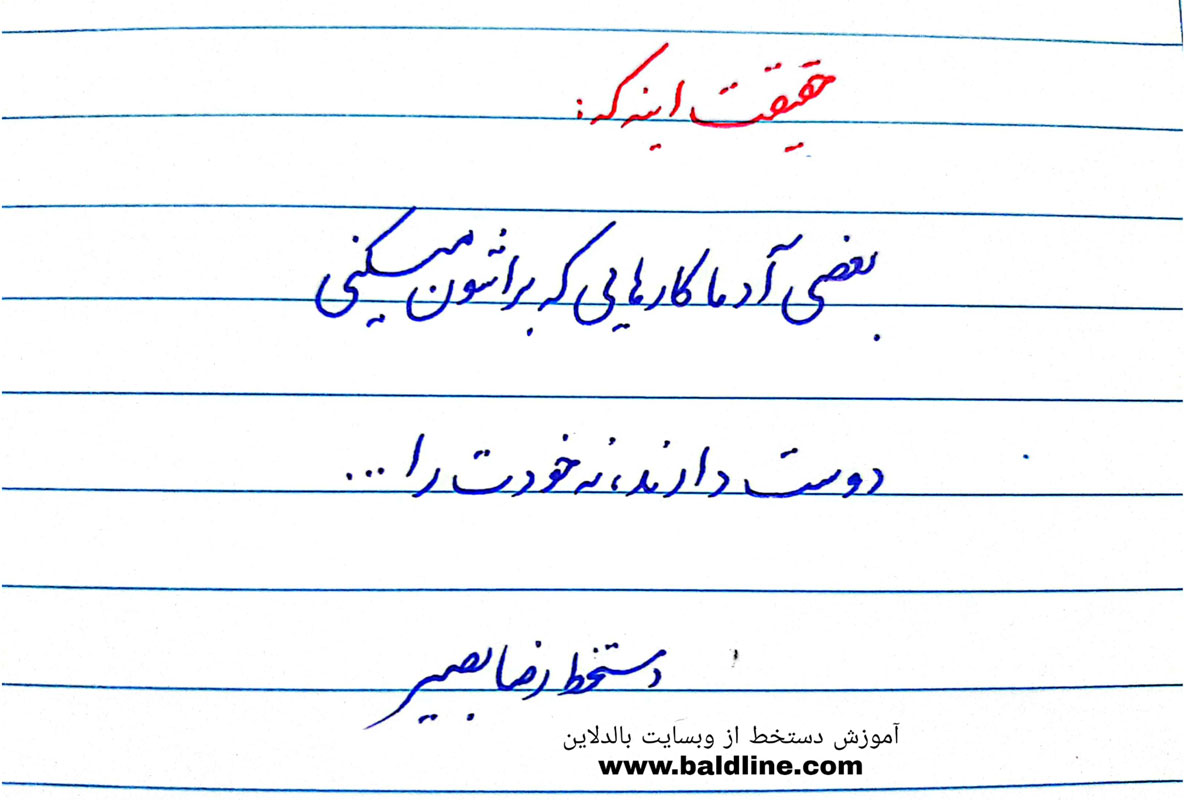 حقیقت اینه که:
بعضی آدما کارهایی که براشون میکنی
دوست دارند، نه خودت را ...
دستخط رضا بصیر
آموزش دستخط از وبسایت بالدلاین
www.baldline.com